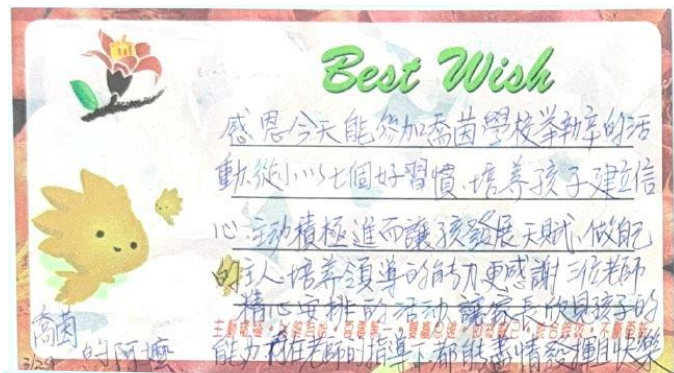 Best Wish
感恩今天能參加喬茵學校舉辦的活
動.從小以七個好習慣.培养孩子建立信
心.主动積極進而讓孩發展天賦.做自己
的主人.培养領導的能力更感謝三位老師
精心安排的活动.讓家長欣見孩子的
主動積極
能力.在老師的指導下都能盡情發揮且快樂
喬茵
的阿嬤
3/29